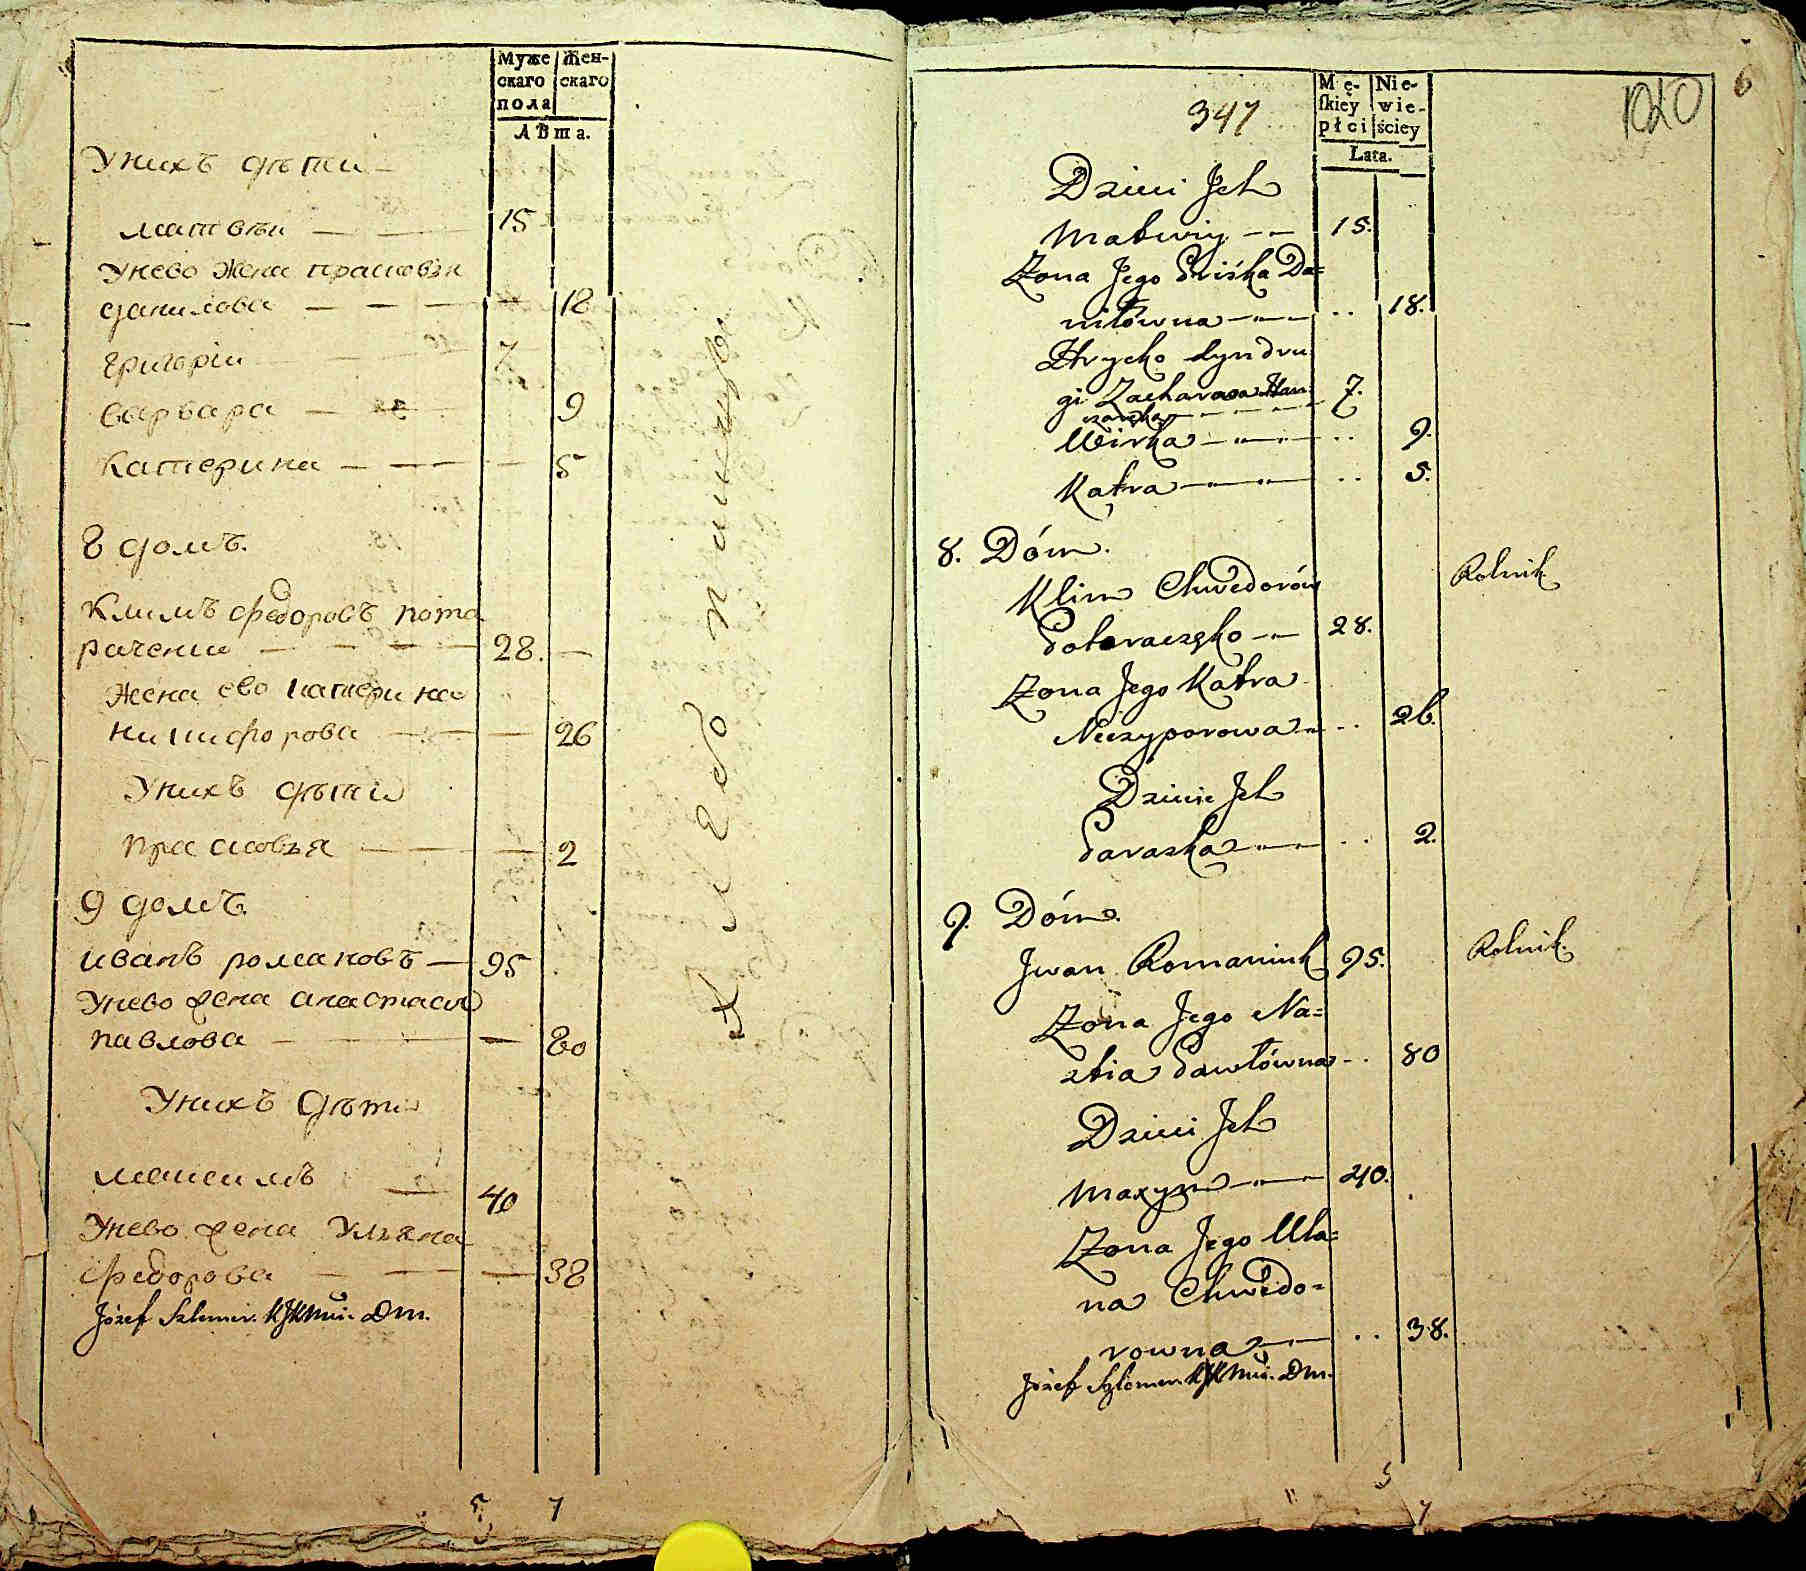 Муже
скаго
пола
Жен-
скаго
Лѣта.
Унихъ дѣти
матвѣи 15
Унево жена прасковья
данилова 18
Григоріи 7
варвара 9
Катерина 5
8 домъ.
Климъ федоровъ пота
раченко 28.
жена ево катерина
никифорова 26
Унихъ дѣти
прасковья 2
9 домъ.
иванъ романовъ 95
Унево жена анастасия
павлова 80
Унихъ дѣти
максимъ 40
Унево жена Ульяна
федорова 38
Józef
Dm.
хлебопашецъ
5 7
6
347
Mę-
ſkiey
płci
Nie-
wie-
ściey
Lata.
Dzieci Jch
Matwiy 15.
Żona Jego Priśka Da=
niłówna 18.
Hrycko Syn dru
gi Zachara 7.
Wirka 9.
Katra 5.
8. Dóm.
Klim Chwedorów Rolnik
Potaraczęko 28.
Żona Jego Katra
Neczyporowa 26.
Dziecie Jch
Paraska 2.
9. Dóm.
Jwan Romaniuk 95. Rolnik.
Żona Jego Na=
stia Pawłówna 80
Dzieci Jch
Maxym 40.
Żona Jego Ula=
na Chwedo=
rowna 38.
Józef
Dm.
5
7